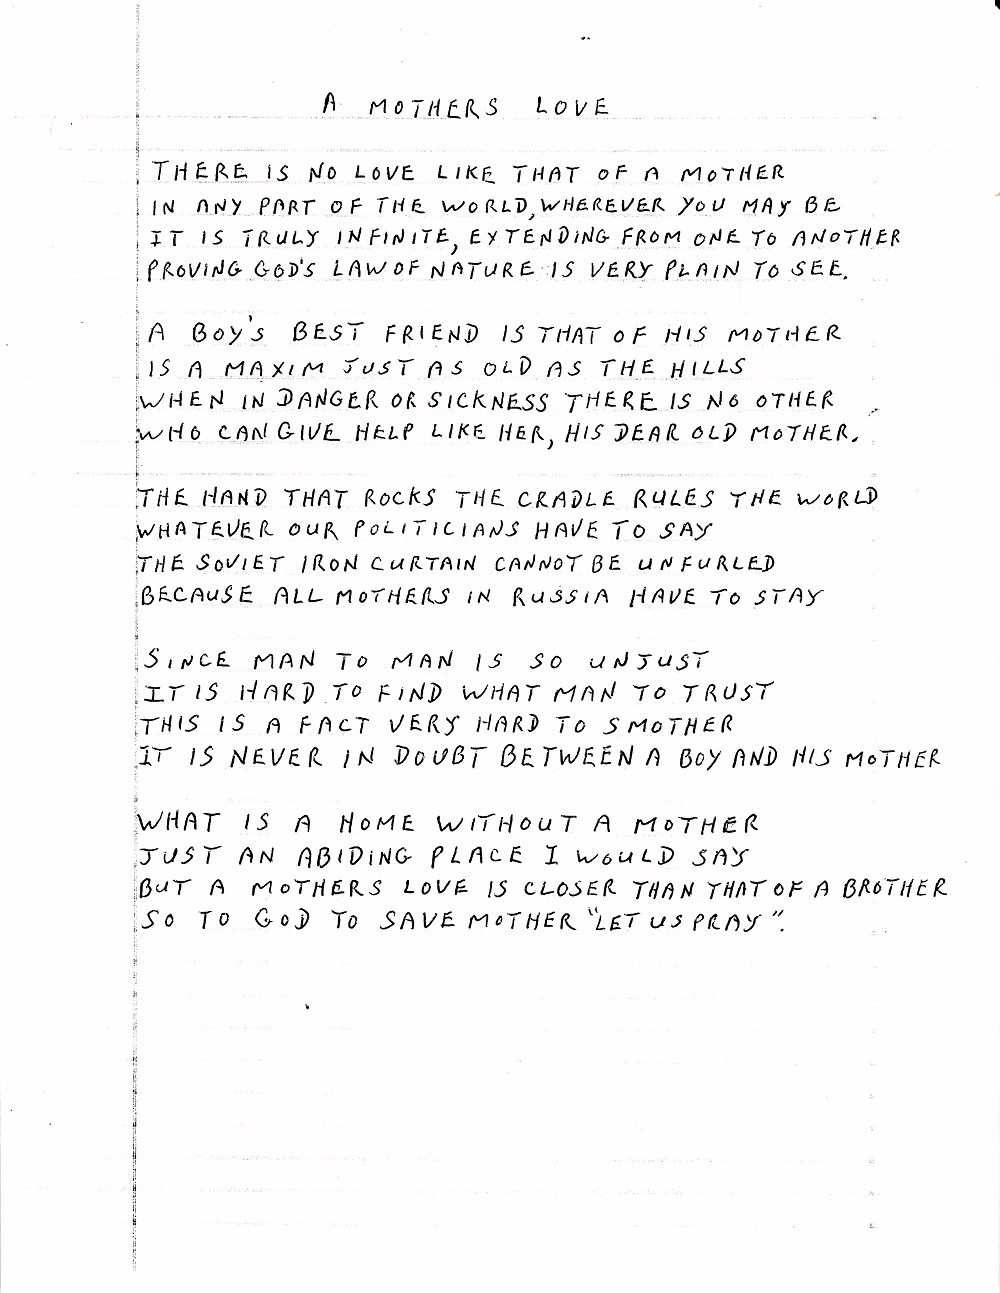 A MOTHERS LOVE
THERE IS NO LOVE LIKE THAT OF A MOTHER
IN ANY PART OF THE WORLD, WHEREVER YOU MAY BE
IT IS TRULY INFINITE, EXTENDING FROM ONE TO ANOTHER
PROVING GOD'S LAW OF NATURE IS VERY PLAIN TO SEE.
A BOY'S BEST FRIEND IS THAT OF HIS MOTHER
IS A MAXIM JUST AS OLD AS THE HILLS
WHEN IN DANGER OR SICKNESS THERE IS NO OTHER
WHO CAN GIVE HELP LIKE HER, HIS DEAR OLD MOTHER.
THE HAND THAT ROCKS THE CRADLE RULES THE WORLD
WHATEVER OUR POLITICIANS HAVE TO SAY
THE SOVIET IRON CURTAIN CANNOT BE UNFURLED
BECAUSE ALL MOTHERS IN RUSSIA HAVE TO STAY
SINCE MAN TO MAN IS SO UNJUST
IT IS HARD TO FIND WHAT MAN TO TRUST
THIS IS A FACT VERY HARD TO SMOTHER
IT IS NEVER IN DOUBT BETWEEN A BOY AND HIS MOTHER
WHAT IS A HOME WITHOUT A MOTHER
JUST AN ABIDING PLACE I WOULD SAY
BUT A MOTHERS LOVE IS CLOSER THAN THAT OF A BROTHER
SO TO GOD TO SAVE MOTHER "LET US PRAY".